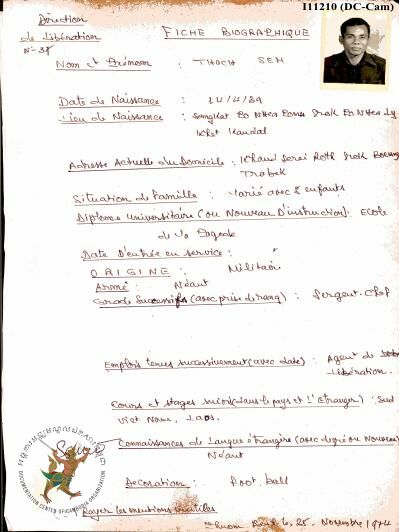 111210 (DC-Cam)
Direction
de Libération
N- 38
FICHE BIOGRAPHIQUE
Nom et Prénom : THOCH SEM
Date de Naissance : /4/39
Lieu de Naissance : Sangkat Po Nhea Srok Po Nhea Ly
Khet Kandal
Adresse Actuelle du Domicile : Khand Serei Roth Srok Boeung
Trabek
Situation de Famille : Marié avec 8 enfants
Diplome Universitaire (ou Nouveau D'instruction) : Ecole
de la Pagode
Date D'entrée en service :
ORIGINE : Militaire
Armé : Néant
Grade Successifs (avec prise de rang) : Sergent-Chef
Emplois tenus successivement (avec date) : Agent de
Libération.
Cours et stages suivis (dans le pays et L'Etranger) : Sud
Viet Nam, Laos.
Connaissances de Langue étrangère (avec degré ou Nouveau)
Néant
Decoration : Foot ball
Rayer les mentions inutiles
Phnom Penh, le 25 Novembre 1974
DOCUMENTATION CENTER OF CAMBODIA ORGANIZATION